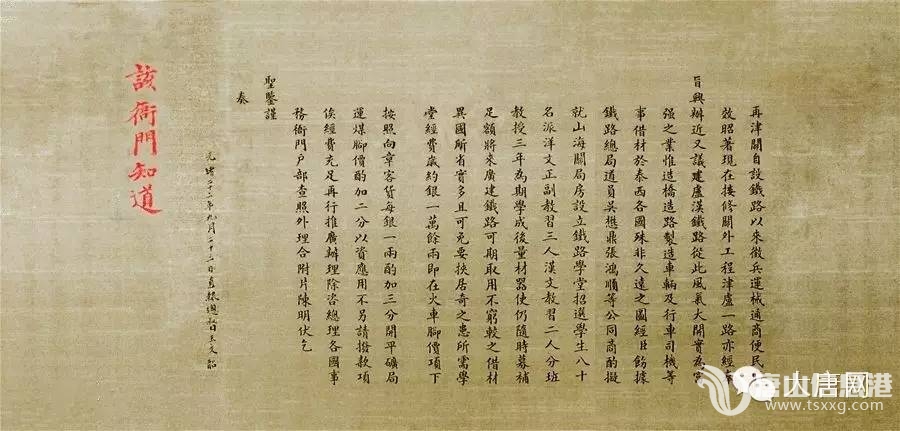 再津關自設鐵路以來徵兵運械通商便民
效昭著現在接修關外工程津盧一路亦經
旨興辦近又議建盧漢鐵路從此風氣大開實為富
强之業惟造橋造路製造車輛及行車司機等
事借材於泰西各國殊非久遠之圖經臣飭據
鐵路總局道員吳懋鼎張鴻順等公同商酌擬
就山海關局房設立鐵路學堂招選學生八十
名派洋文正副教習三人漢文教習二人分班
教授三年為期學成後量材器使仍隨時募補
足額將來廣建鐵路可期取用不窮較之借材
異國所省實多且可免要挾居奇之患所需學
堂經費歲約銀一萬餘兩即在火車腳價項下
按照向章客貨每銀一兩酌加三分開平礦局
運煤腳價酌加二分以資應用不另請撥款項
俟經費充足再行推廣辦理除咨總理各國事
務衙門户部查照外理合附片陳明伏乞
聖鑒謹
奏
光緒二十二年九月二十二日直隸總督臣王文韶
該衙門知道
大唐网
www.tsxxg.com